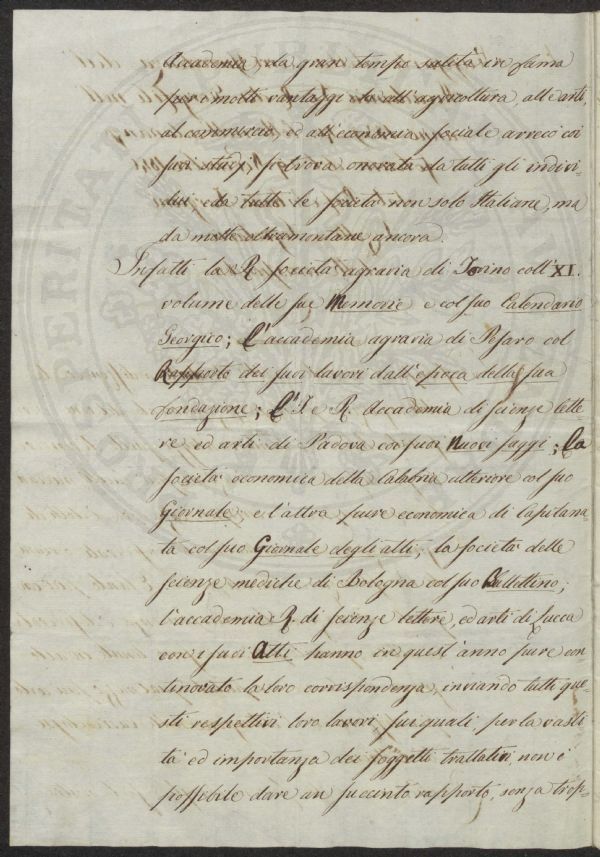 Accademia da gran tempo salita in fama
per i molti vantaggi che all'agricoltura, all'arti,
al commercio, ed all'economia sociale arrecò coi
suoi studj, si trova onorata da tutti gli indivi-
dui e da tutte le società non solo Italiane, ma
da molte oltramontane ancora.
Infatti la R. società agraria di Torino coll'XI.
volume delle sue Memorie e col suo Calendario
Georgico; l'accademia agraria di Pesaro col
Rapporto dei suoi lavori dall'epoca della sua
fondazione; l'I e R. Accademia di scienze lette-
re ed arti di Padova coi suoi Nuovi saggi; la
società economica della Calabria ulteriore col suo
Giornale, e l'altra pure economica di Capitana-
ta col suo Giornale degli atti; la società delle
scienze mediche di Bologna col suo Bullettino;
l'accademia R. di scienze lettere, ed arti di Lucca
con i suoi Atti hanno in quest'anno pure con-
tinovato la loro corrispondenza, inviando tutti que-
sti respettivi loro lavori, sui quali, per la vasti-
tà ed importanza dei soggetti trattativi, non è
possibile dare un succinto rapporto, senza trop-